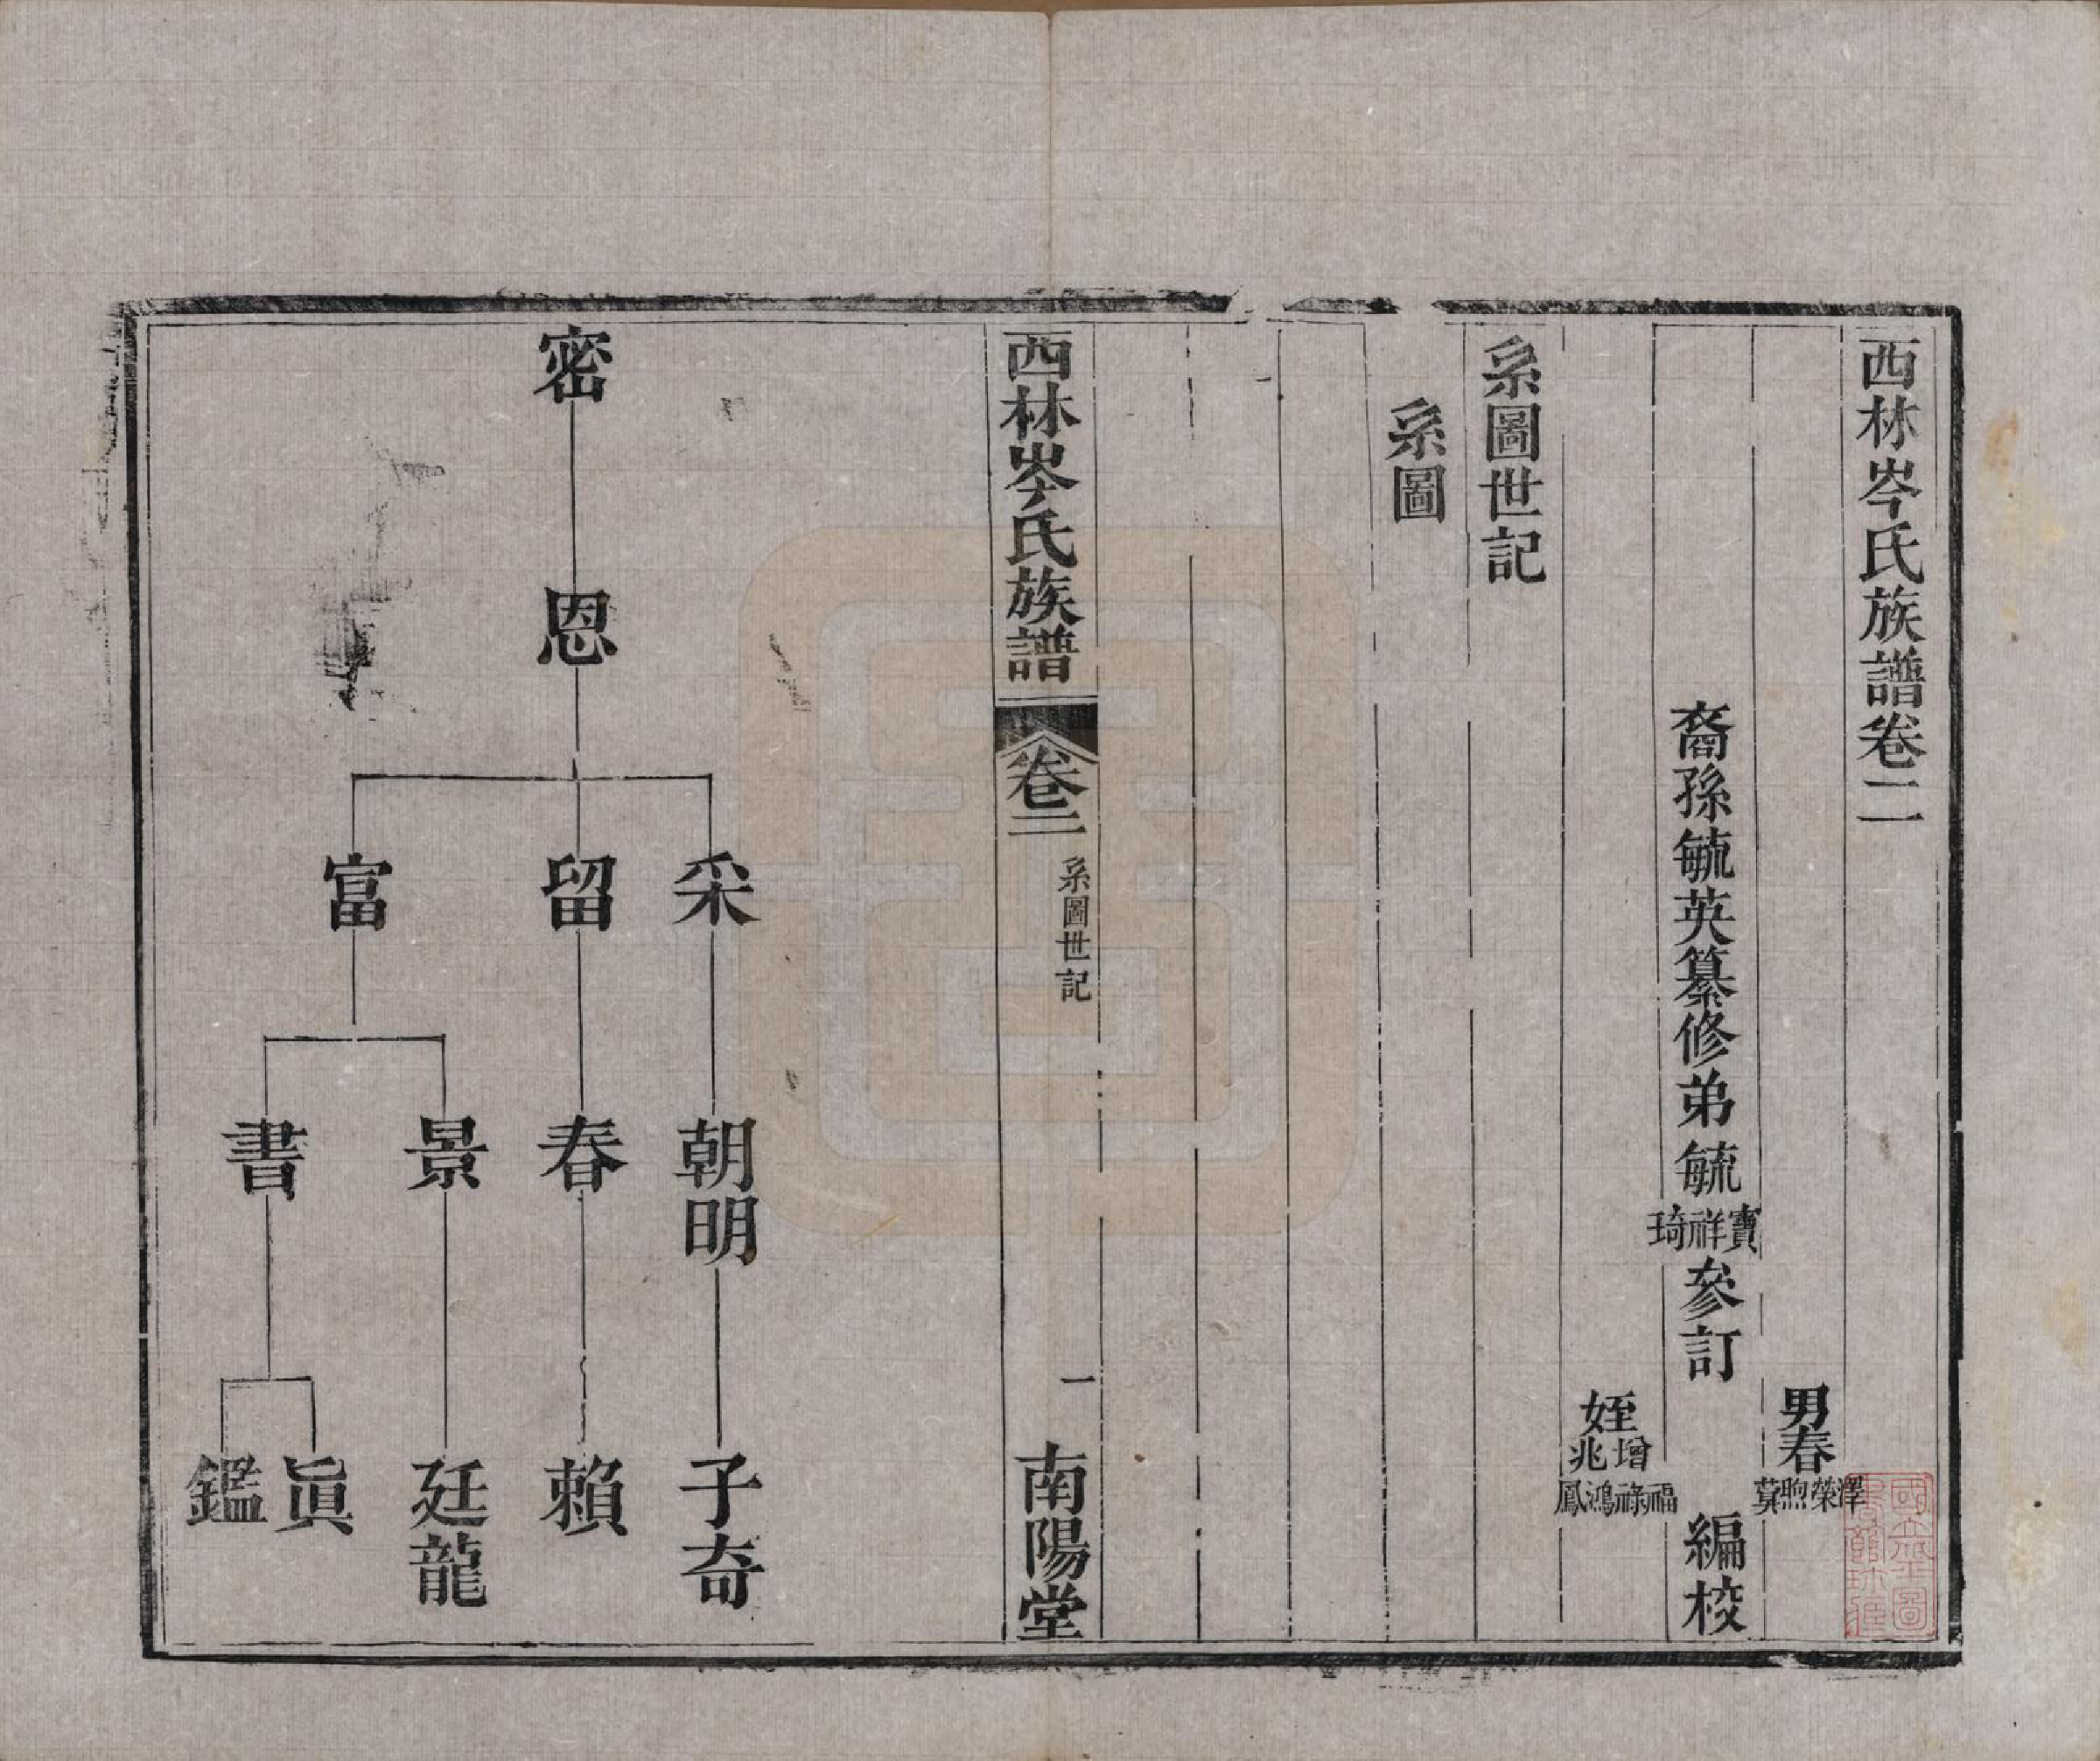 西林岑氏族譜卷二
男春澤榮煦蓂
裔孫毓英纂修弟毓寶祥琦參訂
編校
姪增福祿
兆鴻鳳
系圖世記
系圖
西林岑氏族譜
卷二
系圖世記
一
南陽堂
密
恩
采
留
富
朝明
春
景
書
子奇
賴
廷龍
眞
鑑
國立北平圖書館珍藏